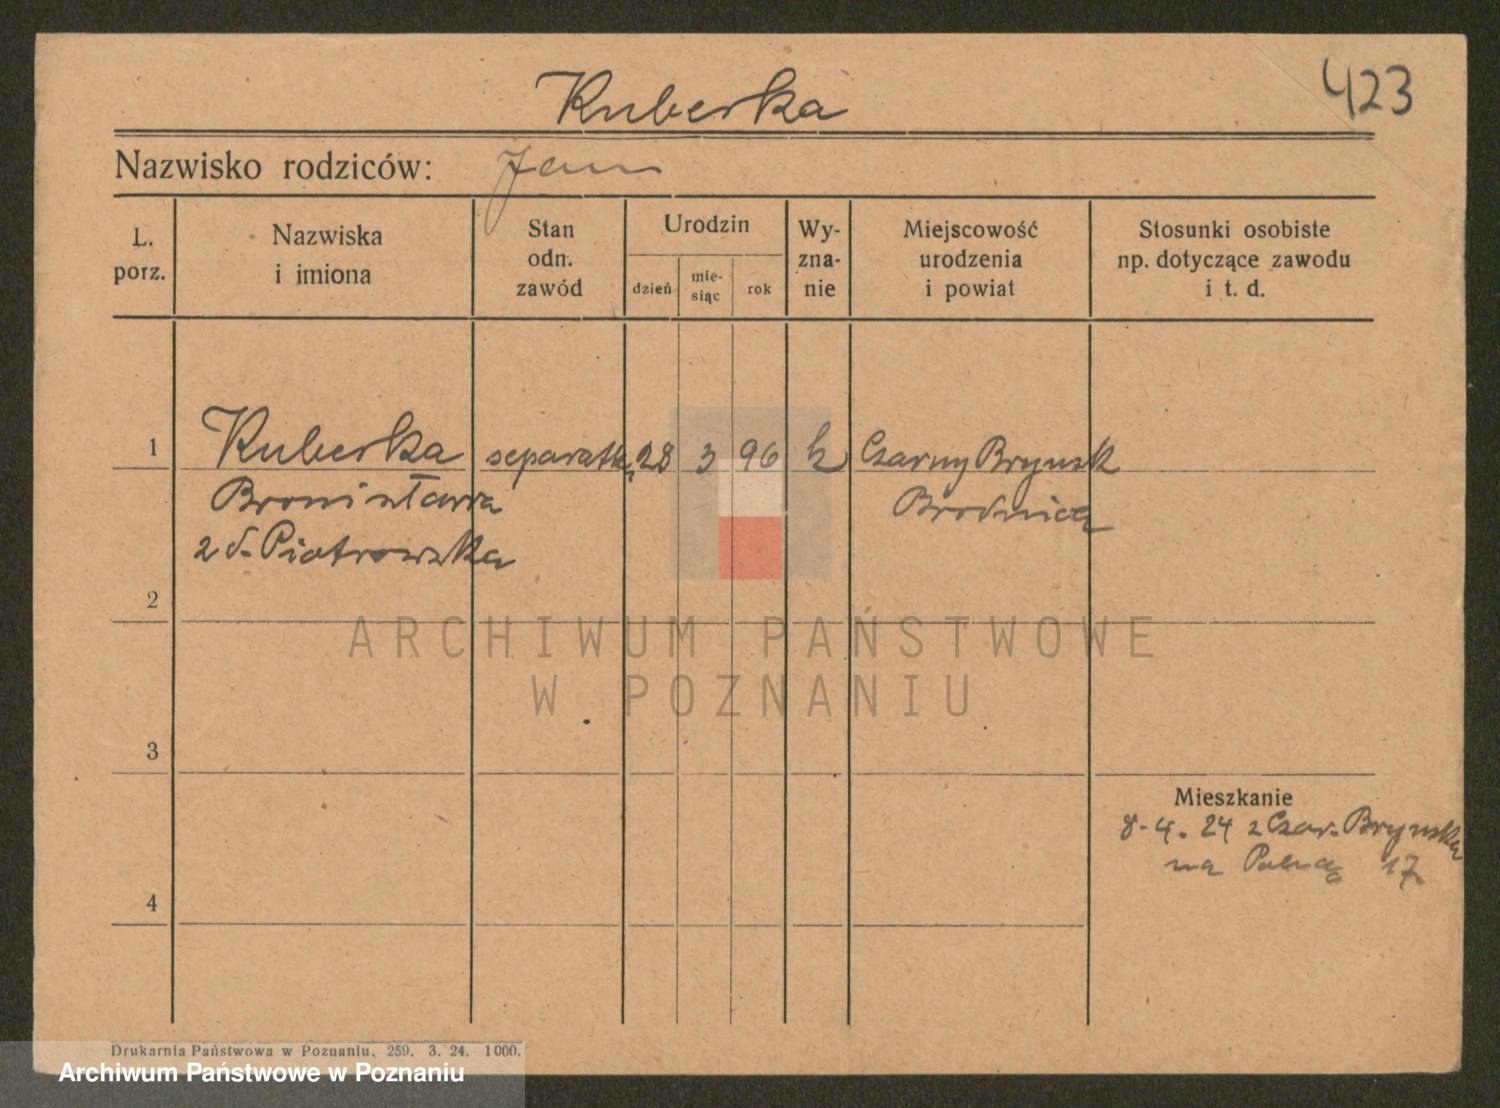 423
Kuberska
Nazwisko rodziców: Jan
L. porz.
Nazwiska i imiona
Stan odn. zawód
Urodzin
dzień
mie-
siąc
rok
Wy-
zna-
nie
Miejscowość urodzenia i powiat
Stosunki osobiste np. dotyczące zawodu i t. d.
1 Kuberska separatką 28 3 96 k Czarny Brynsk
Bronisława Brodnica
z d. Piotrowska
2
ARCHIWUM PAŃSTWOWE
W POZNANIU
3
Mieszkanie
8.4.24 z Czar. Brynska
na 17
4
Drukarnia Państwowa w Poznaniu. 259. 3. 24. 1000.
Archiwum Państwowe w Poznaniu